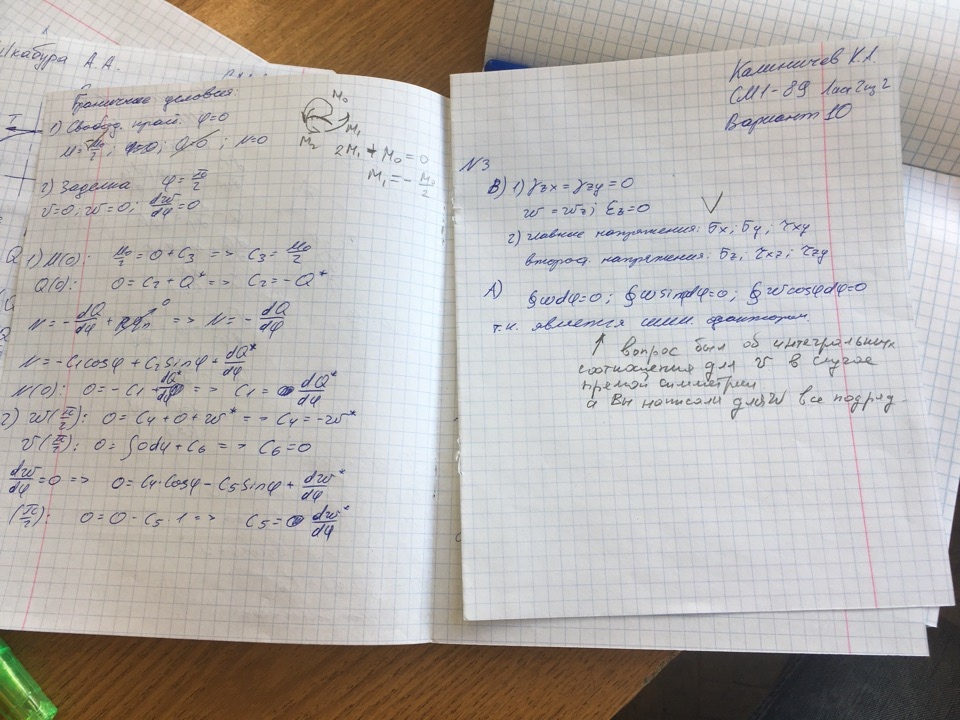 Шкабура А.А.
T
Q
Граничные условия:
1) Свобод. край. φ=0
M=M₀/2; Q=0; N=0
M₀
M₁
M₂
2M₁ + M₀ = 0
M₁ = - M₀/2
2) Заделка φ = π/2
v=0; w=0; dw/dφ=0
1) M(0): M₀/2 = 0 + C₃ => C₃ = M₀/2
Q(0): 0 = C₂ + Q* => C₂ = -Q*
N = - dQ/dφ + => N = - dQ/dφ
N = -C₁cosφ + C₂sinφ + dQ*/dφ
N(0): 0 = -C₁ + dQ*/dφ => C₁ = dQ*/dφ
2) w(π/2): 0 = C₄ + 0 + w* => C₄ = -w*
v(π/2): 0 = ∫0dφ + C₆ => C₆ = 0
dw/dφ = 0 => 0 = C₄·cosφ - C₅sinφ + dw*/dφ
(π/2): 0 = 0 - C₅·1 => C₅ = dw*/dφ
Калиничев К.А.
СМ1-89
Вариант 10
N3
В) 1) γzx = γzy = 0
w = wz; εz = 0
2) главные напряжения: σx; σy; τxy
второст. напряжения: σz; τxz; τzy
А) ∮wdφ=0; ∮wsinφdφ=0; ∮wcosφdφ=0
т.к. является симм. фактором.
↑ вопрос был об интегральных
соотношения для v в случае
прямой симметрии
а Вы написали для w все подряд